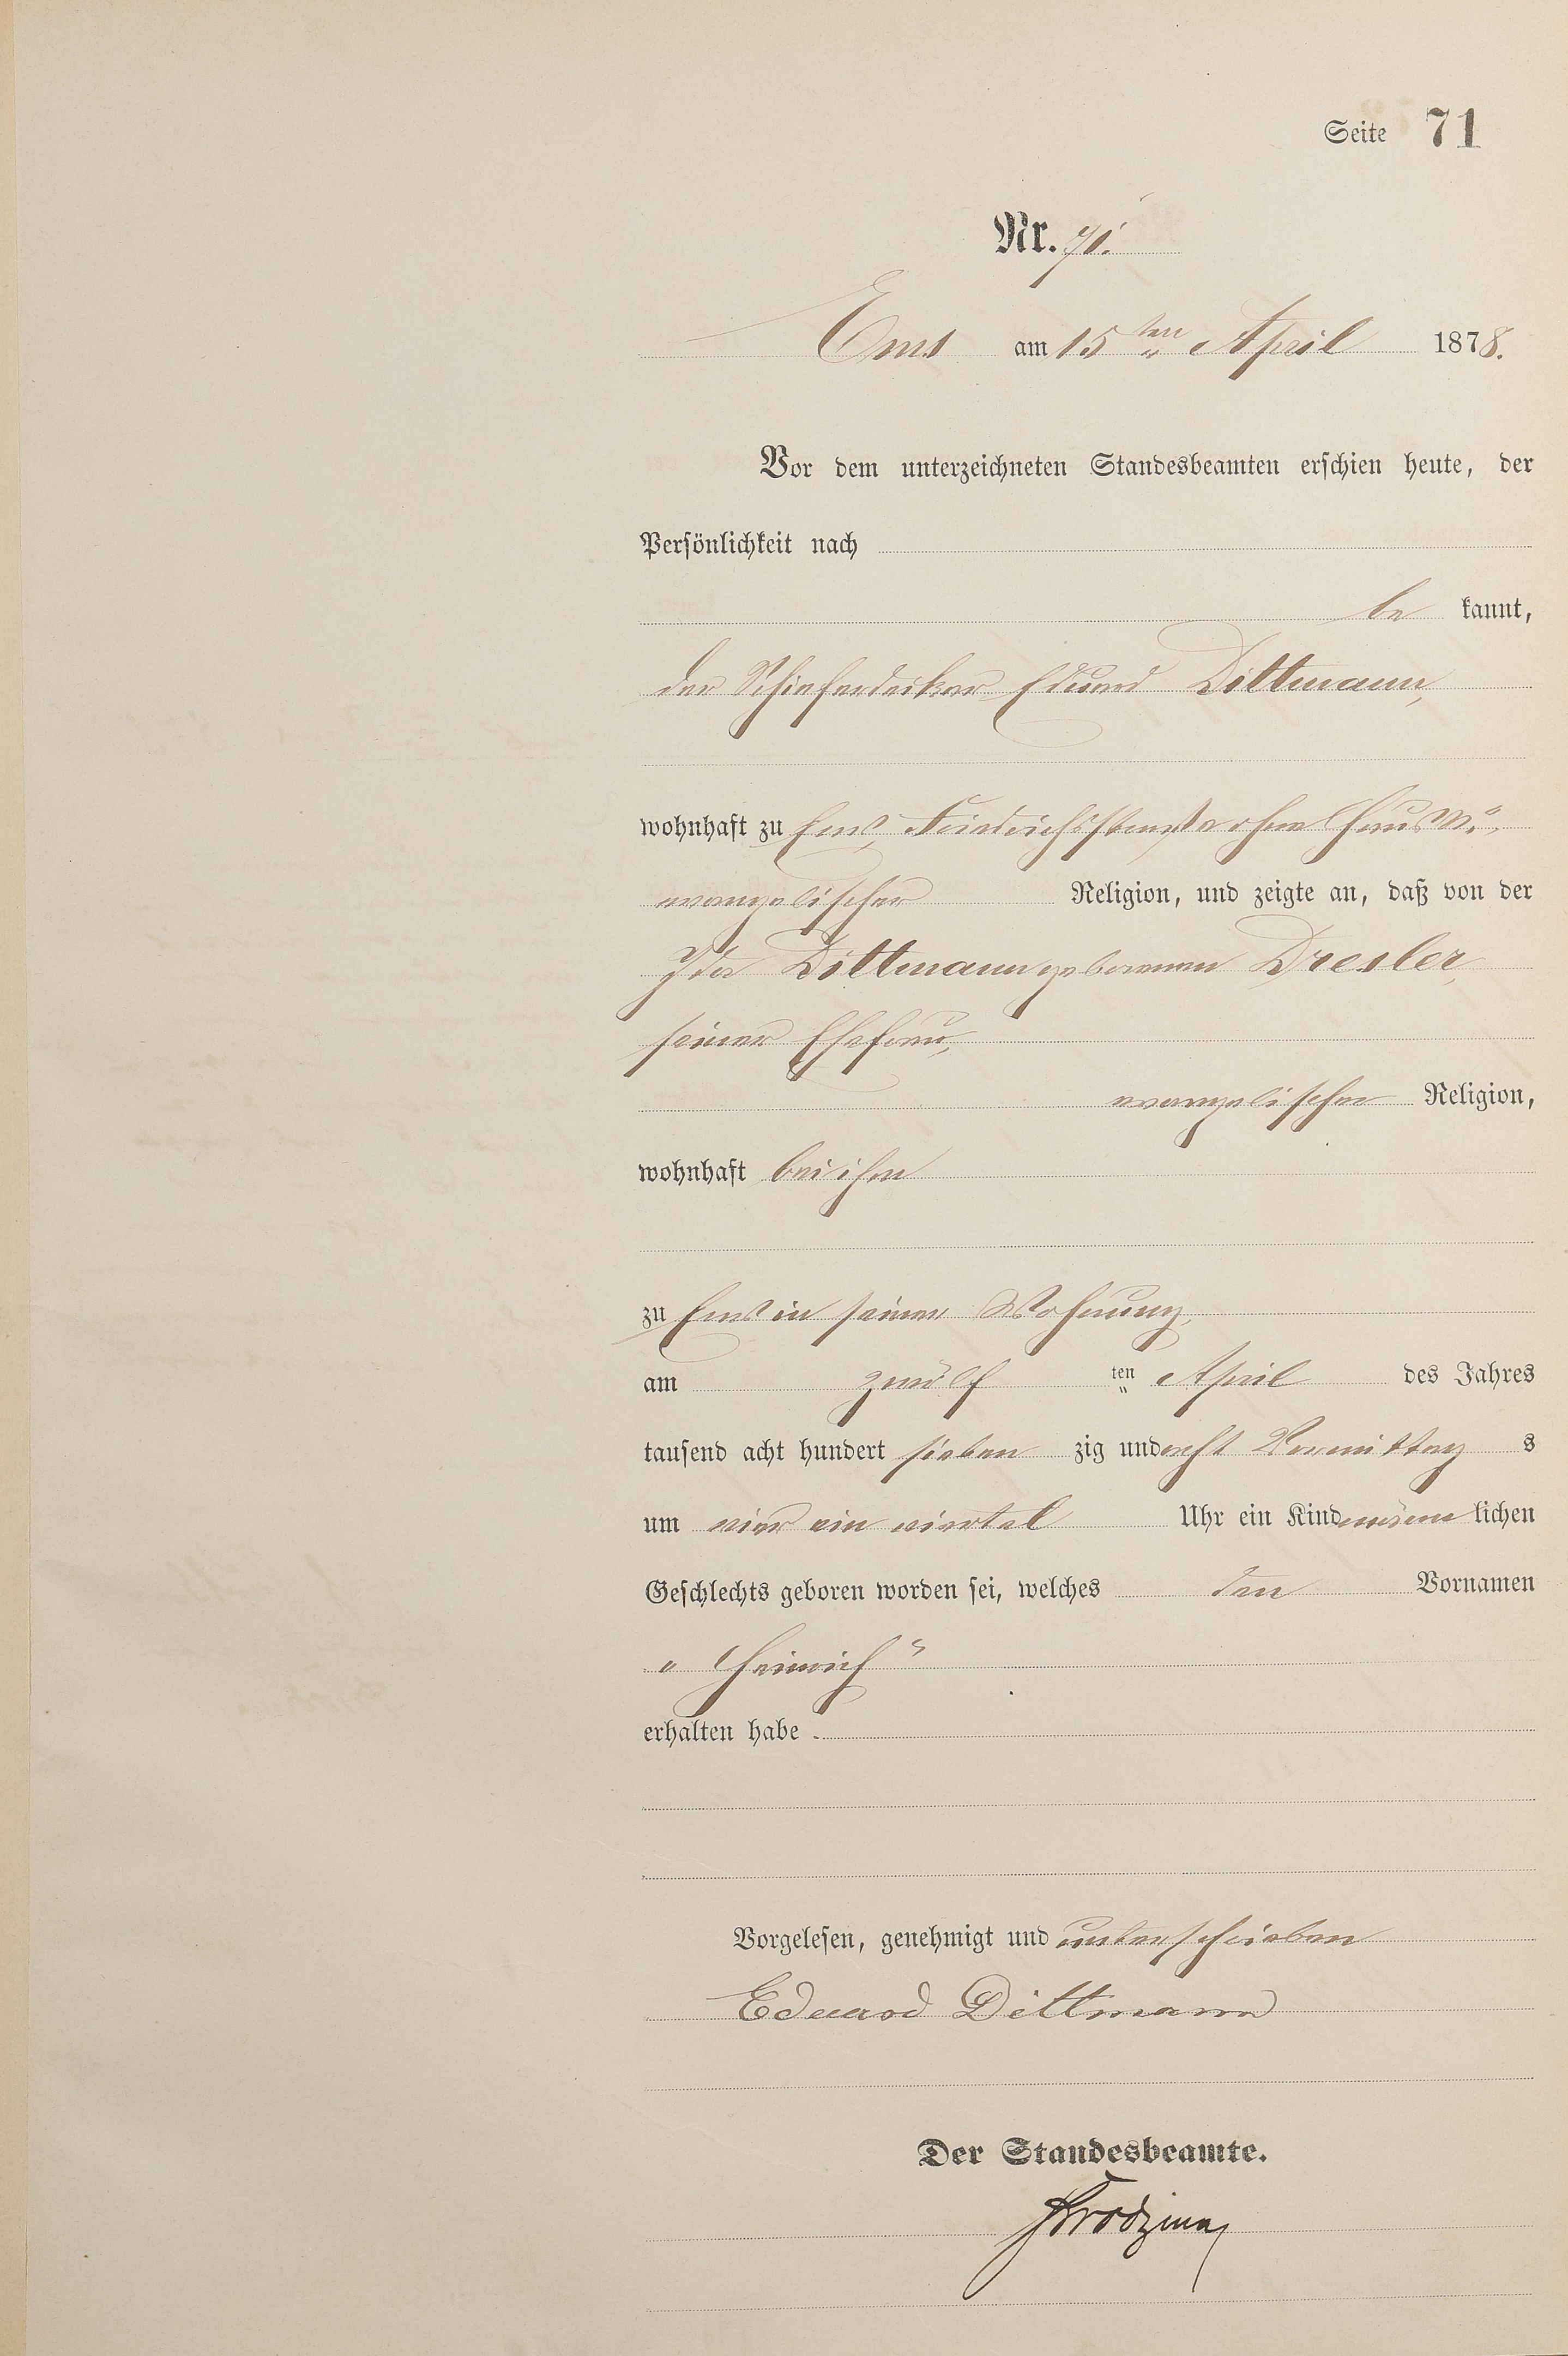 Seite 71
Nr. 71.
Ems am 15ten April 1878.
Vor dem unterzeichneten Standesbeamten erschien heute, der
Persönlichkeit nach
be kannt,
der Schieferdecker Eduard Dittmann,
wohnhaft zu Ems, Friedrichstraße ohne Haus No,
evangelischer Religion, und zeigte an, daß von der
Ida Dittmann geborenen Dresler,
seiner Ehefrau,
evangelischer Religion,
wohnhaft bei ihm
zu Ems in seiner Wohnung,
am zwölf ten April des Jahres
tausend acht hundert sieben zig und acht Vormittag s
um vier ein viertel Uhr ein Kind männ lichen
Geschlechts geboren worden sei, welches den Vornamen
„Heinrich“
erhalten habe.
Vorgelesen, genehmigt und unterschrieben
Eduard Dittmann
Der Standesbeamte.